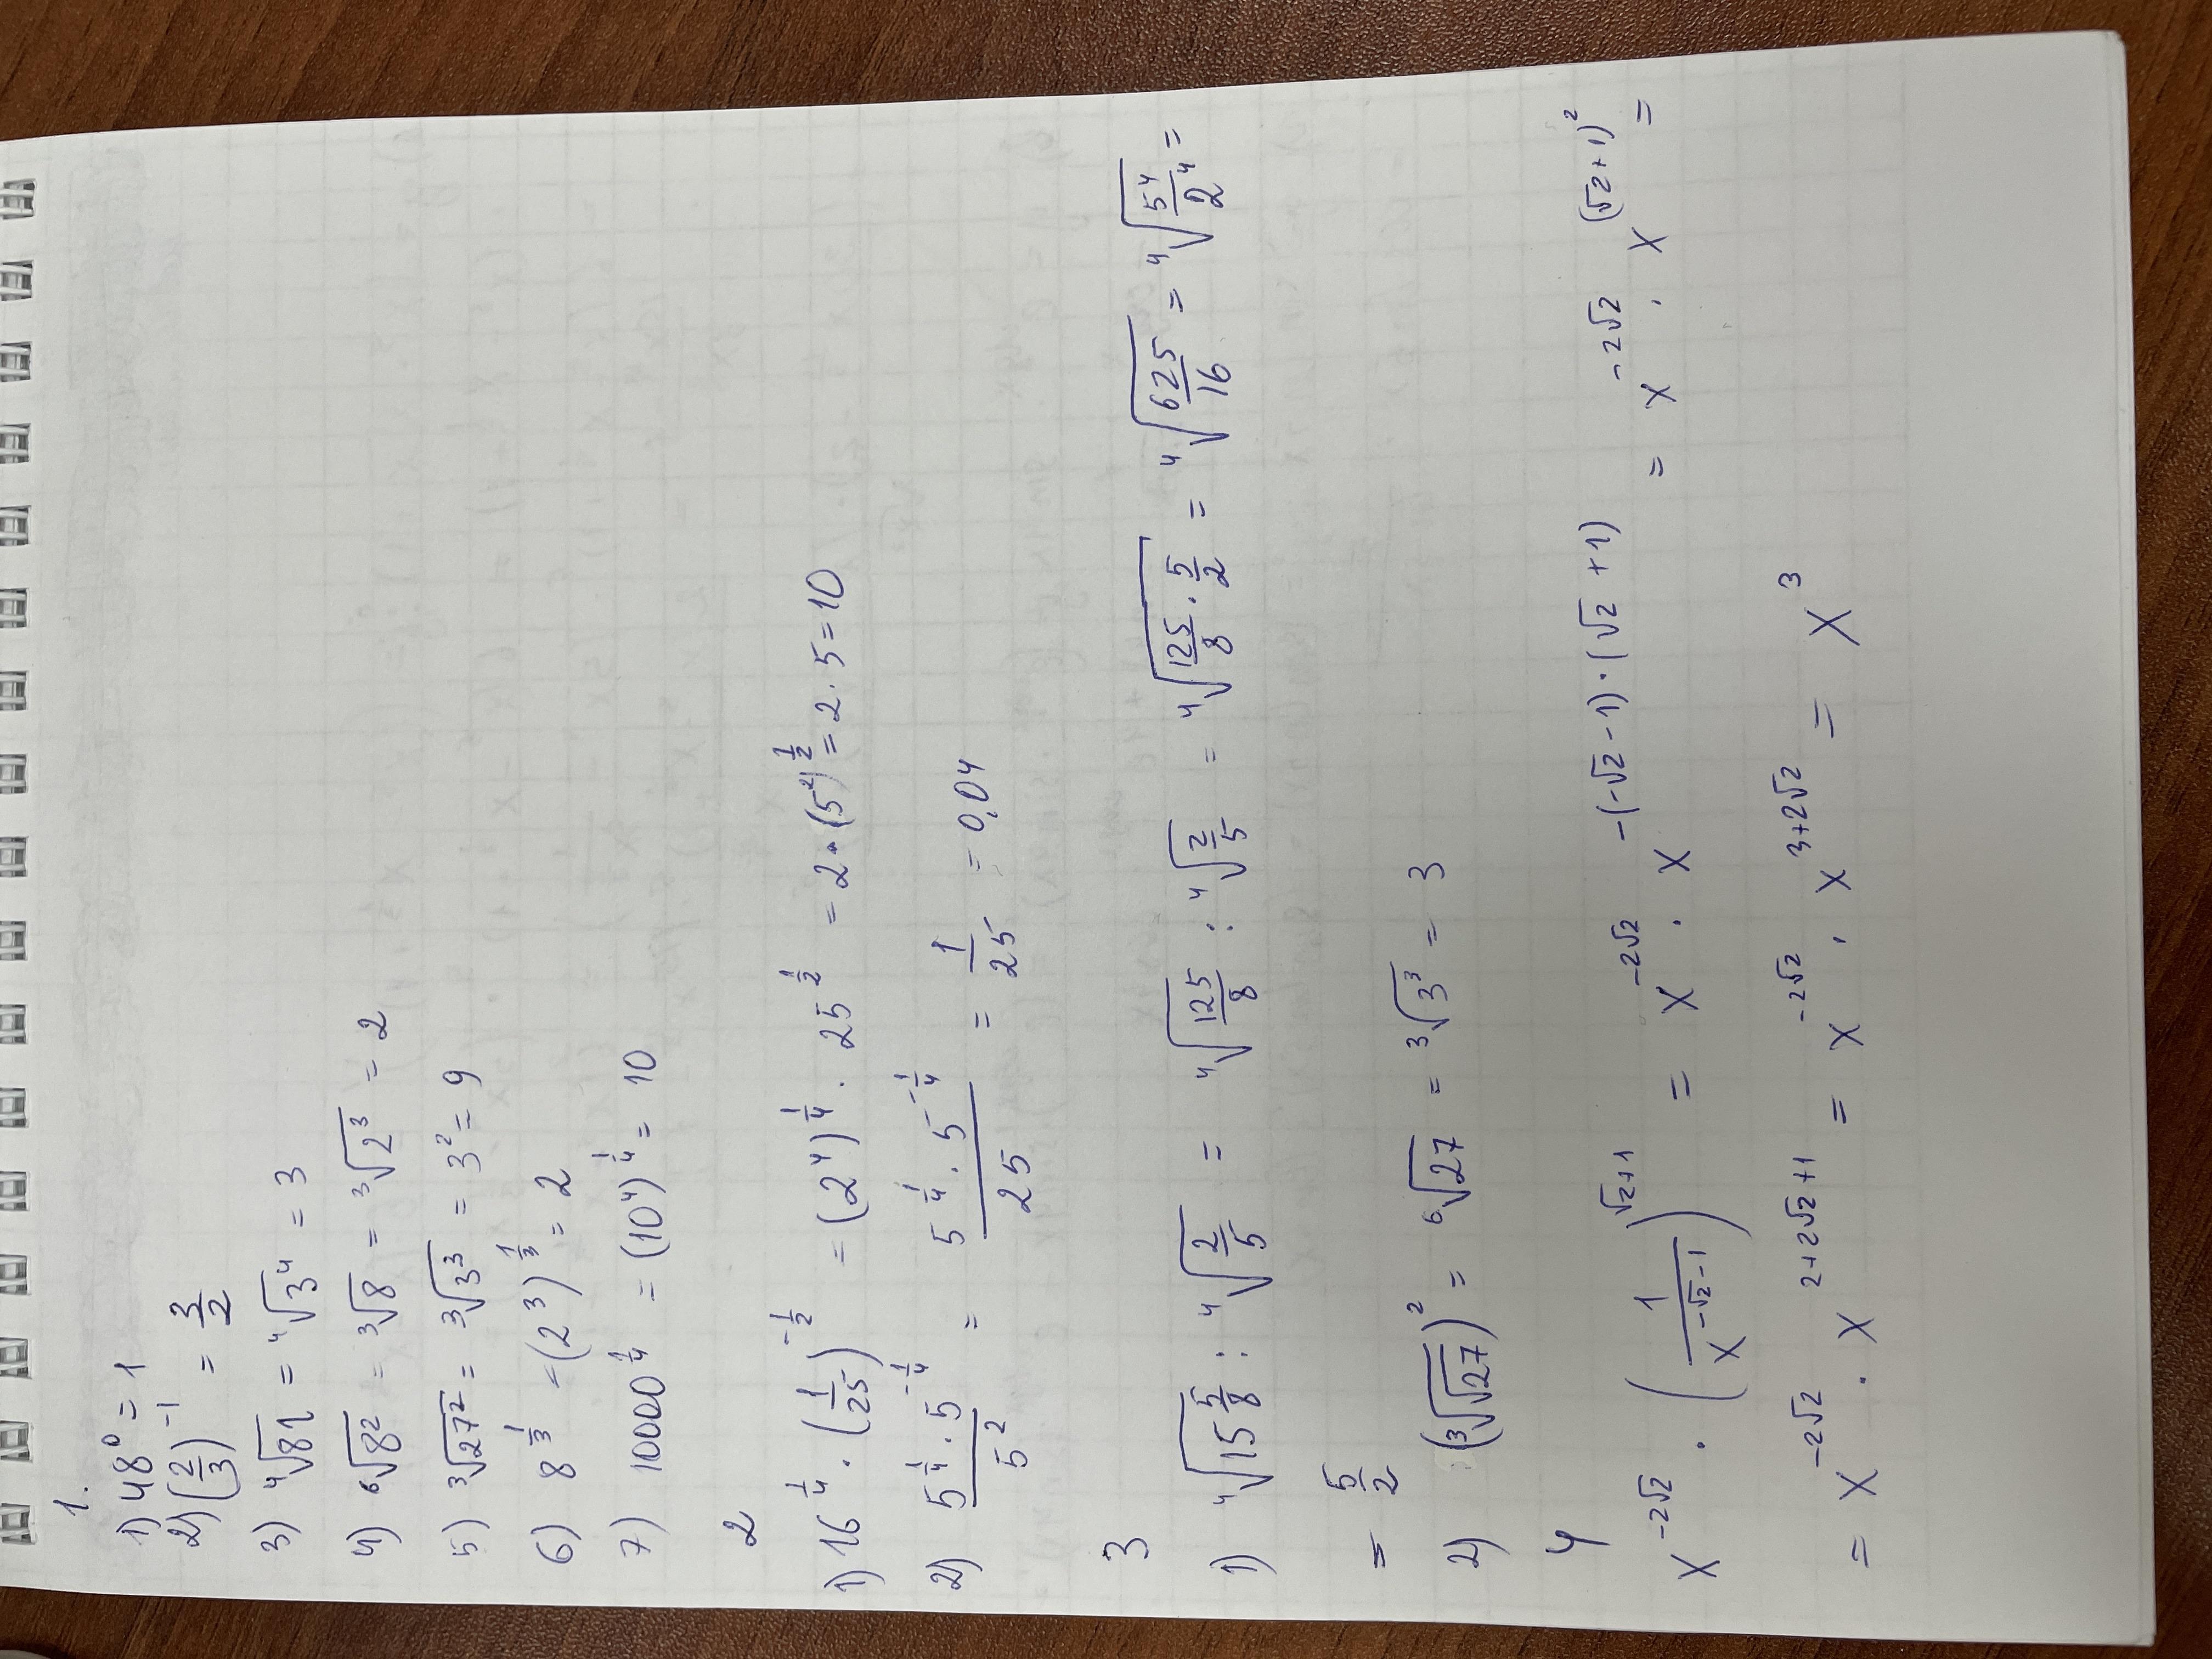 1.
1) 48⁰ = 1
2) (2/3)⁻¹ = 3/2
3) ⁴√81 = ⁴√3⁴ = 3
4) ⁶√8² = ³√8 = ³√2³ = 2
5) ³√27² = ³√3³ = 3² = 9
6) 8^(1/3) = (2³)^(1/3) = 2
7) 10000^(1/4) = (10⁴)^(1/4) = 10
2
1) 16^(1/4) · (1/25)^(-1/2) = (2⁴)^(1/4) · 25^(1/2) = 2 · (5²)^(1/2) = 2 · 5 = 10
2) (5^(1/4) · 5^(-1/4))/5² = (5^(1/4) · 5^(-1/4))/25 = 1/25 = 0,04
3
1) ⁴√(15 5/8) : ⁴√(2/5) = ⁴√(125/8) : ⁴√(2/5) = ⁴√(125/8 · 5/2) = ⁴√(625/16) = ⁴√(5⁴/2⁴) =
= 5/2
2) (³√√27)² = ⁶√27 = ³√3³ = 3
4
x^(-2√2) · (1/x^(-√2-1))^(√2+1) = x^(-2√2) · x^(-(-√2-1)·(√2+1)) = x^(-2√2) · x^((√2+1)²) =
= x^(-2√2) · x^(2+2√2+1) = x^(-2√2) · x^(3+2√2) = x³